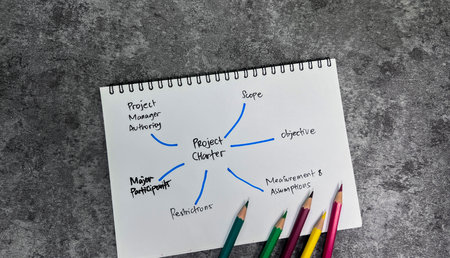 Project
Manager
Authority
Scope
Project
Charter
Objective
Major
Participants
Measurement &
Assumptions
Restrictions